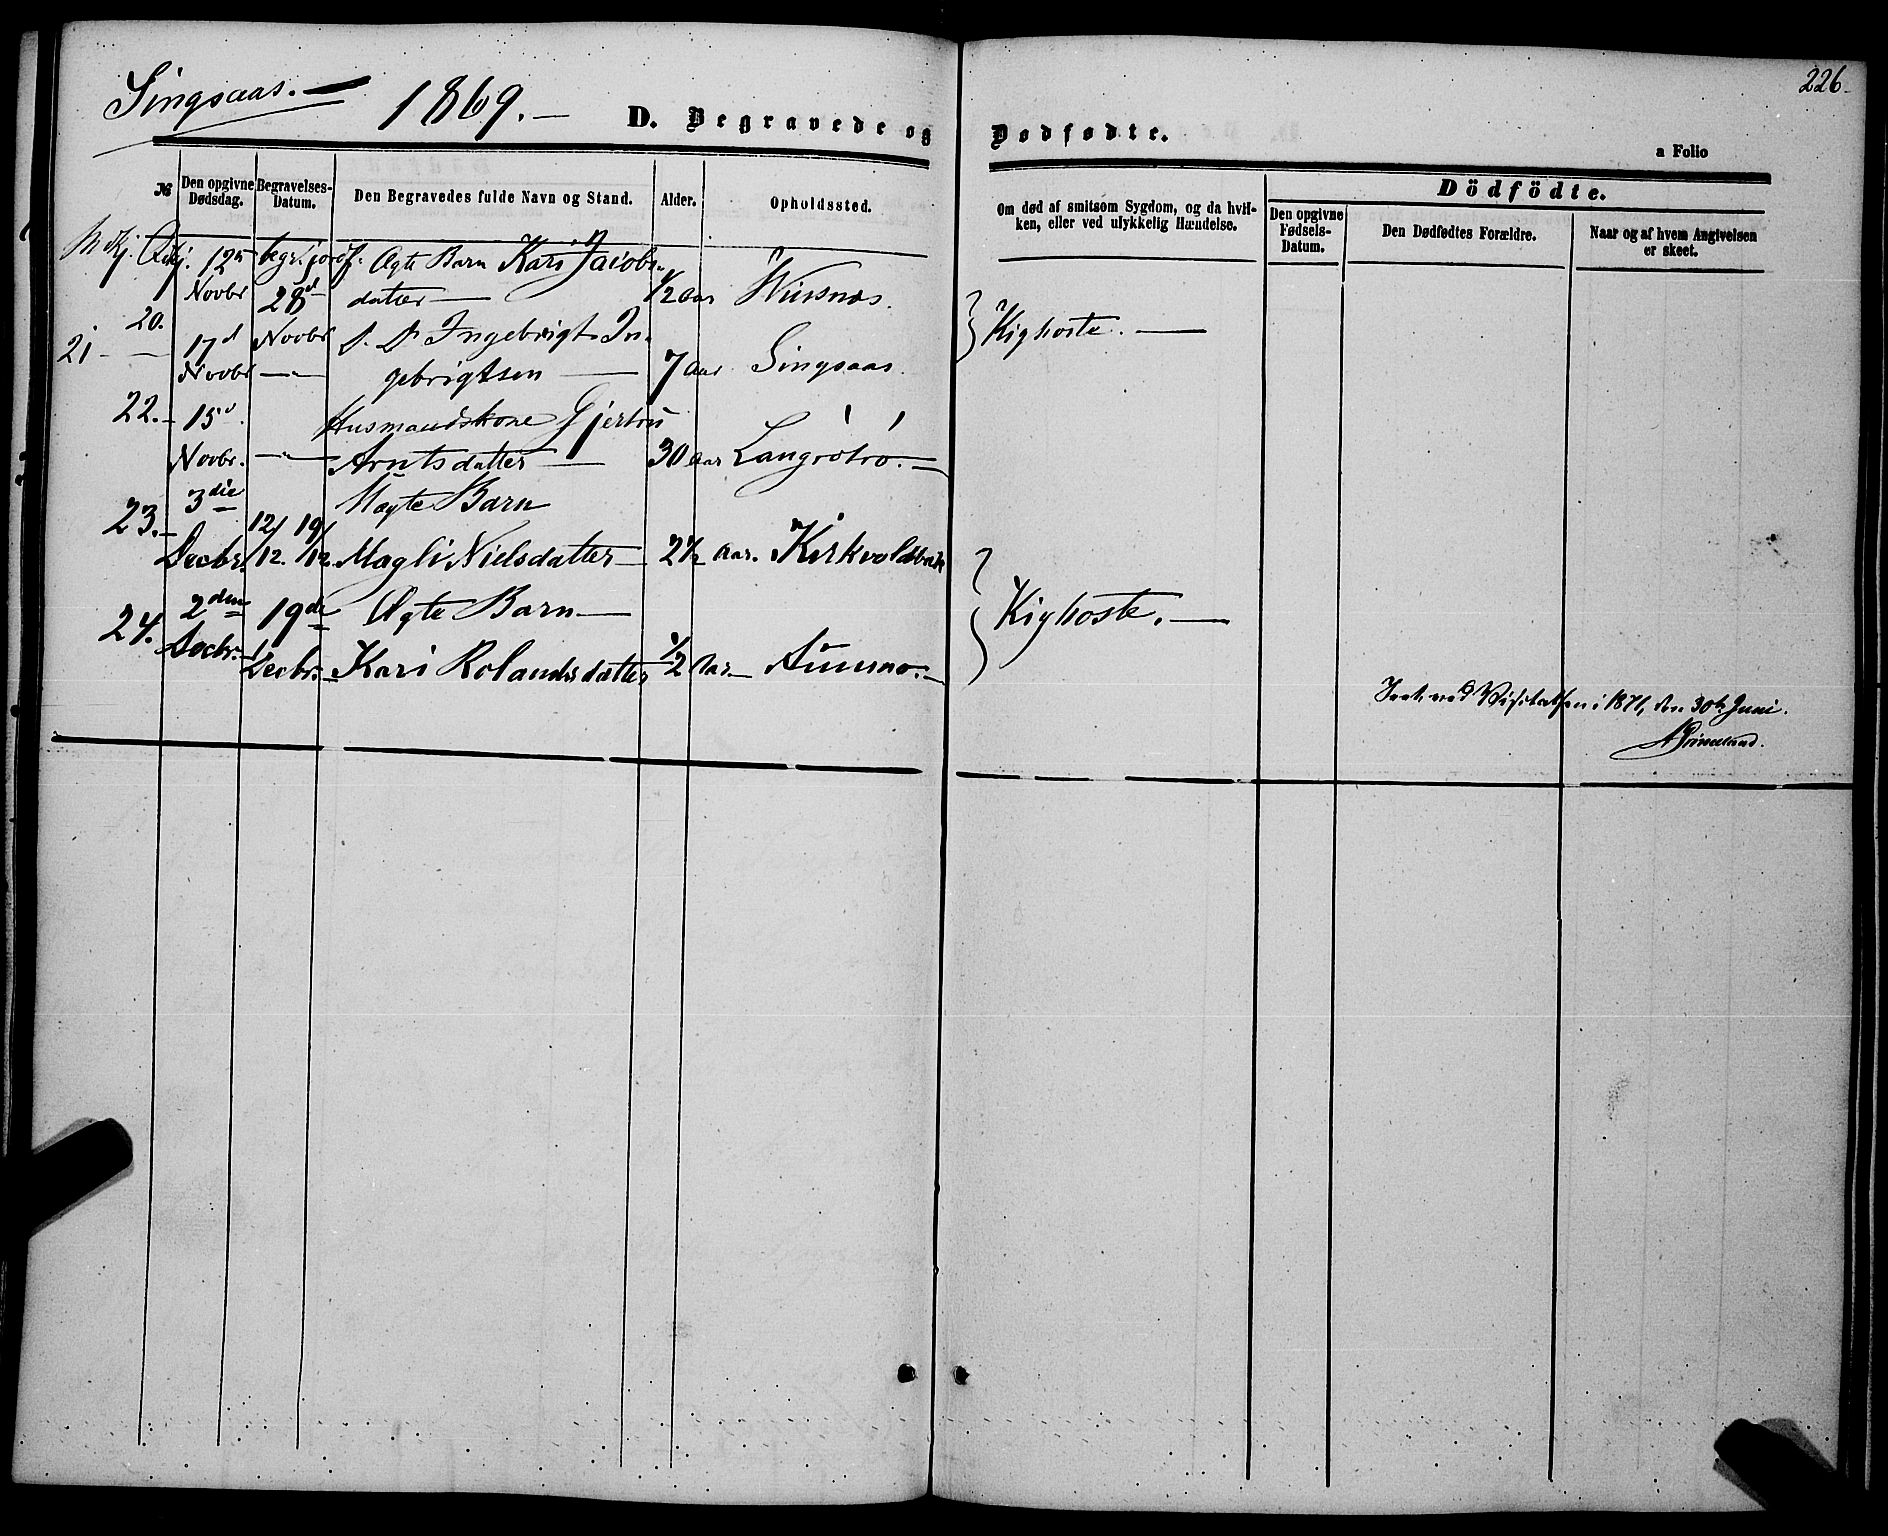 226
Singsaas.
1869.
D. Begravede og Dødfødte.
a Folio
№
Den opgivne Dødsdag.
Begravelses-Datum.
Den Begravedes fulde Navn og Stand.
Alder.
Opholdssted.
Om død af smitsom Sygdom, og da hvilken, eller ved ulykkelig Hændelse.
Dödfödte.
Den opgivne Fødsels-Datum.
Den Dødfødtes Forældre.
Naar og af hvem Angivelsen er skeet.
begr. jordf.
20. 12 Novbr 28 Novbr Ægte Barn Kari Jacobsdatter 1/2 aar
Kighoste.
21 17d Novbr — " — Ingebrigt Ingebrigtsen 7 aar Singsaas.
22. 15d Novbr. — " — Husmandskone Gjertru Arntsdatter 30 aar
23. 3die Decbr. 12/12. 19/12 Uægte Barn Magli Nielsdatter 2 1/2 aar.
24. 2den Decbr. 19de Decbr. Ægte Barn Kari Rolandsdatter 1/2 aar
Kighoste.
ved Visitatsen i 1871, den 30te Juni.